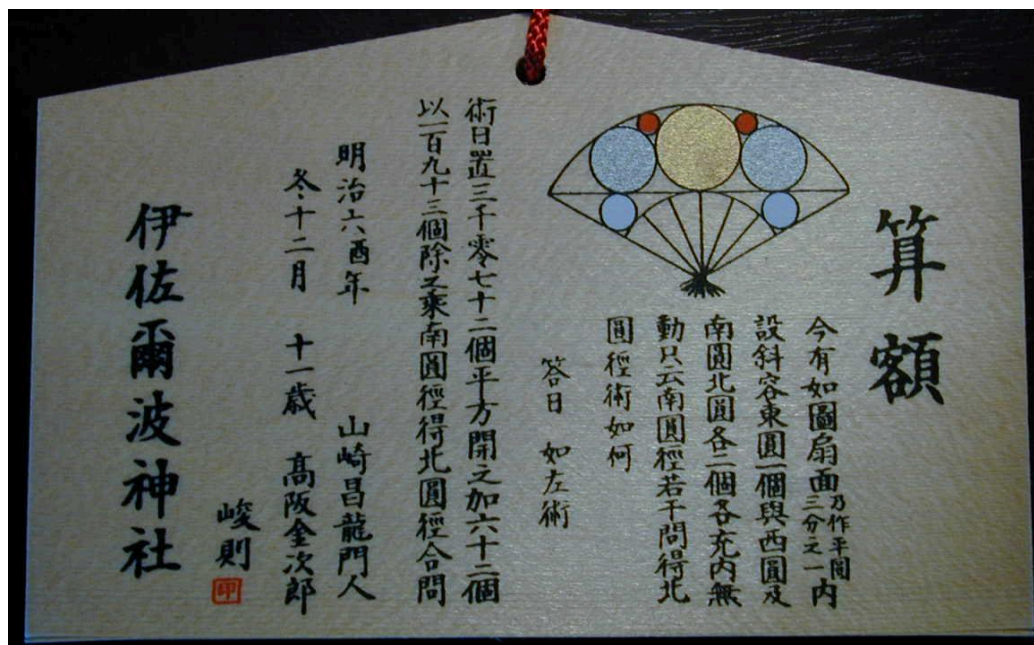 算額
今有如圖扇面乃作平圓三分之一内
設斜容東圓一個與西圓及
南圓北圓各二個各充内無
動只云南圓徑若干問得北
圓徑術如何
答曰 如左術
術曰置三千零七十二個平方開之加六十二個
以一百九十三個除之乘南圓徑得北圓徑合問
明治六酉年 山崎昌龍門人
冬十二月 十一歳 高阪金次郎
峻則 印
伊佐爾波神社